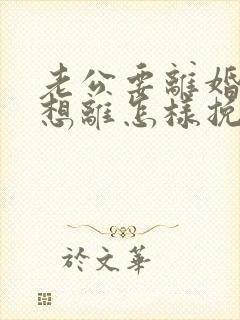 老公要離婚
想離怎樣挽
於文華